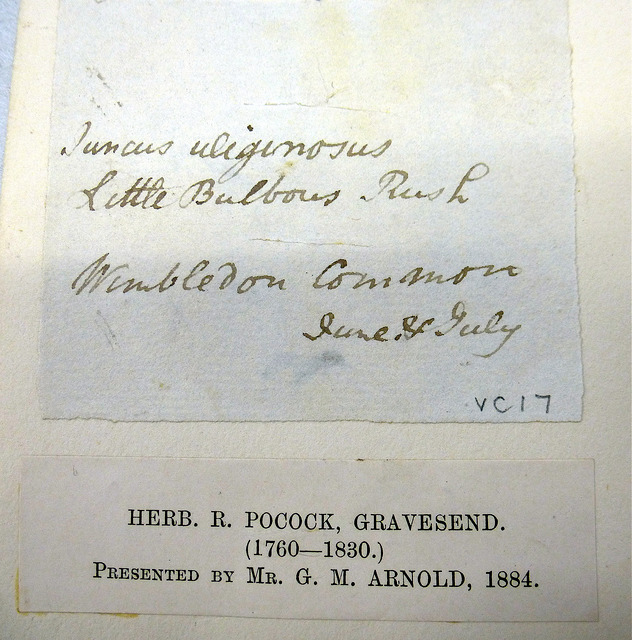 Juncus uliginosus
Little Bulbous Rush
Wimbledon Common
June & July
VC17
HERB. R. POCOCK, GRAVESEND.
(1760—1830.)
PRESENTED BY MR. G. M. ARNOLD, 1884.